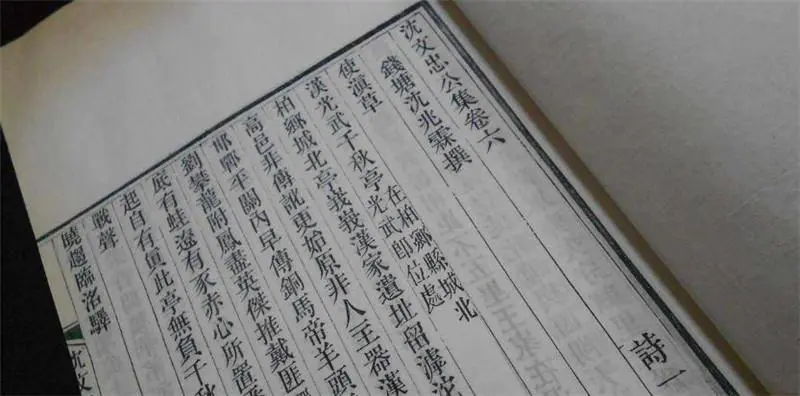 沈文忠公集卷六
詩一
錢塘沈兆霖撰
使滇草
漢光武千秋亭
在柏鄉縣城北
光武即位處
柏鄉城北亭峩峩漢家遺址留滹沱
高邑非傳訛更始原非人王器漢
邯鄲平關內早傳銅馬帝羊頭
劉攀龍附鳳盡英傑推戴匪
底有蛙遼有豕赤心所置
起自有真此亭無負千秋
戰聲
曉趨臨洺驛
沈文